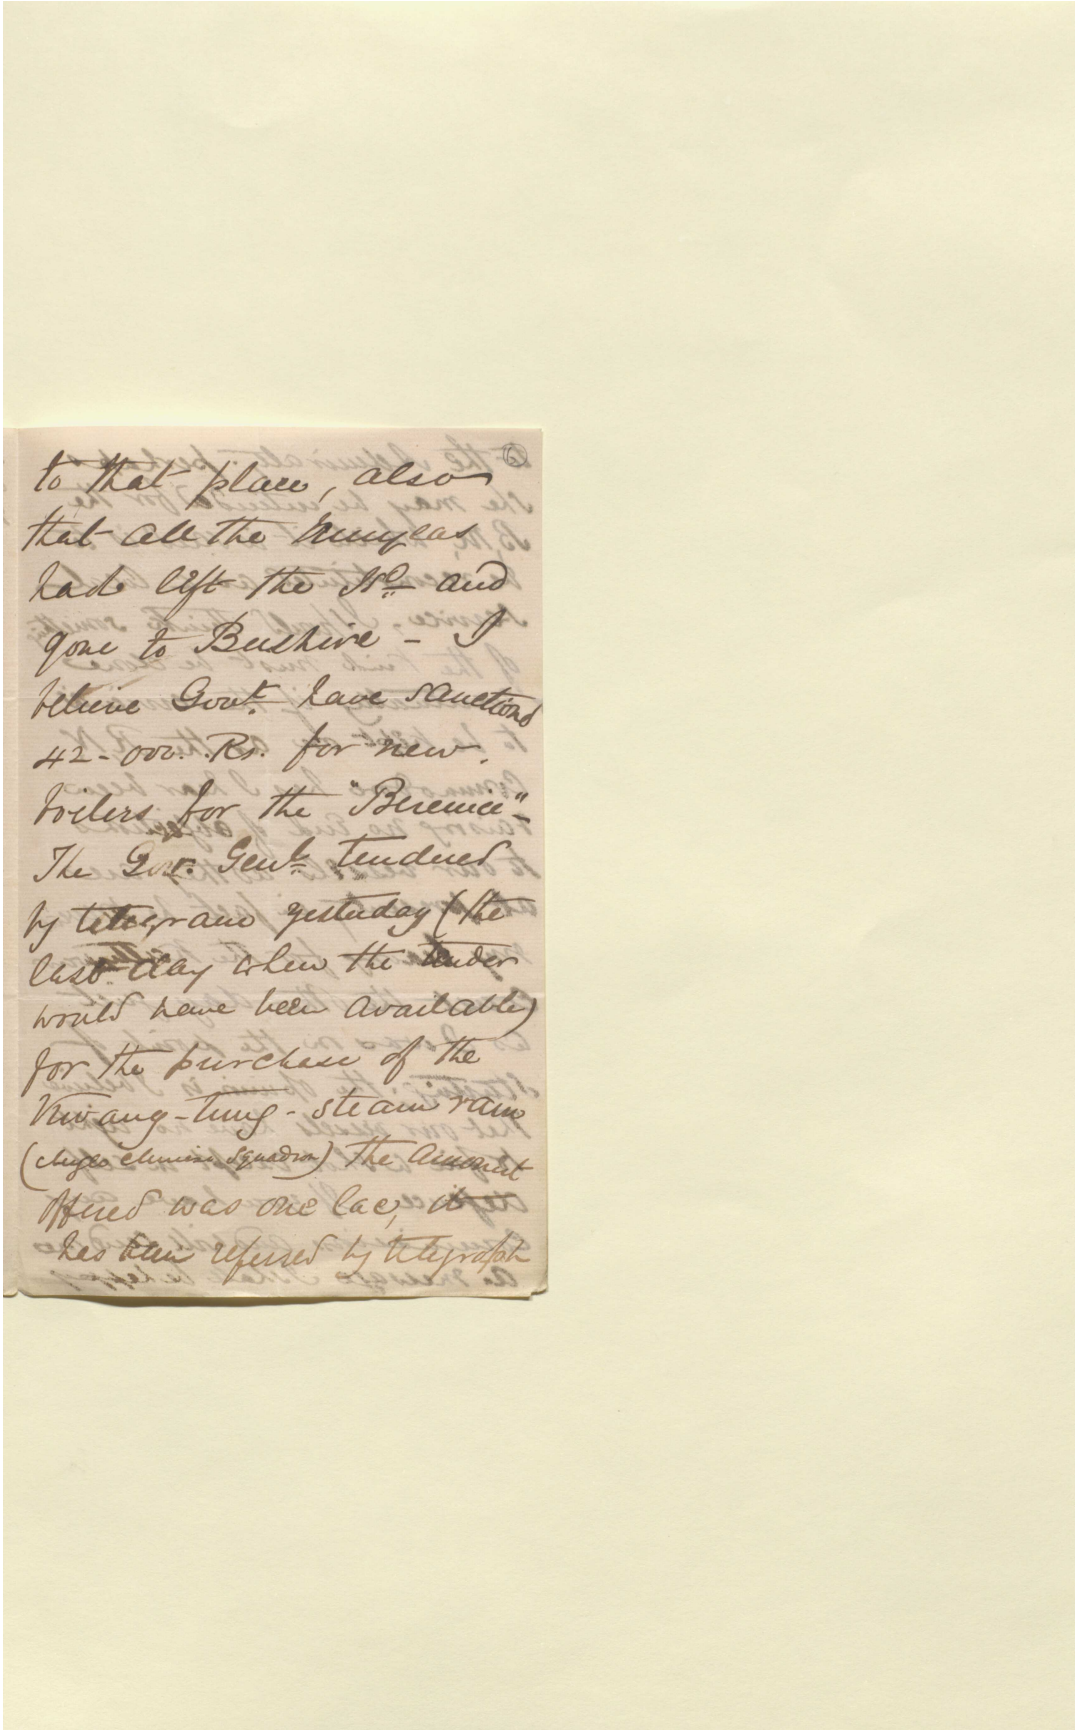 6
to that place, also
that all the Munyeas
had left the Isd. and
gone to Bushire - I
believe Govt. have sanctioned
42-000. Rs. for new
boilers for the "Berenice" -
The Gov. Genl. tendered
by telegram yesterday (the
last day when the tender
would have been available)
for the purchase of the
Kwang-Tung - steam ram
(Anglo Chinese Squadron) the amount
offered was one lac, it
has been referred by telegraph